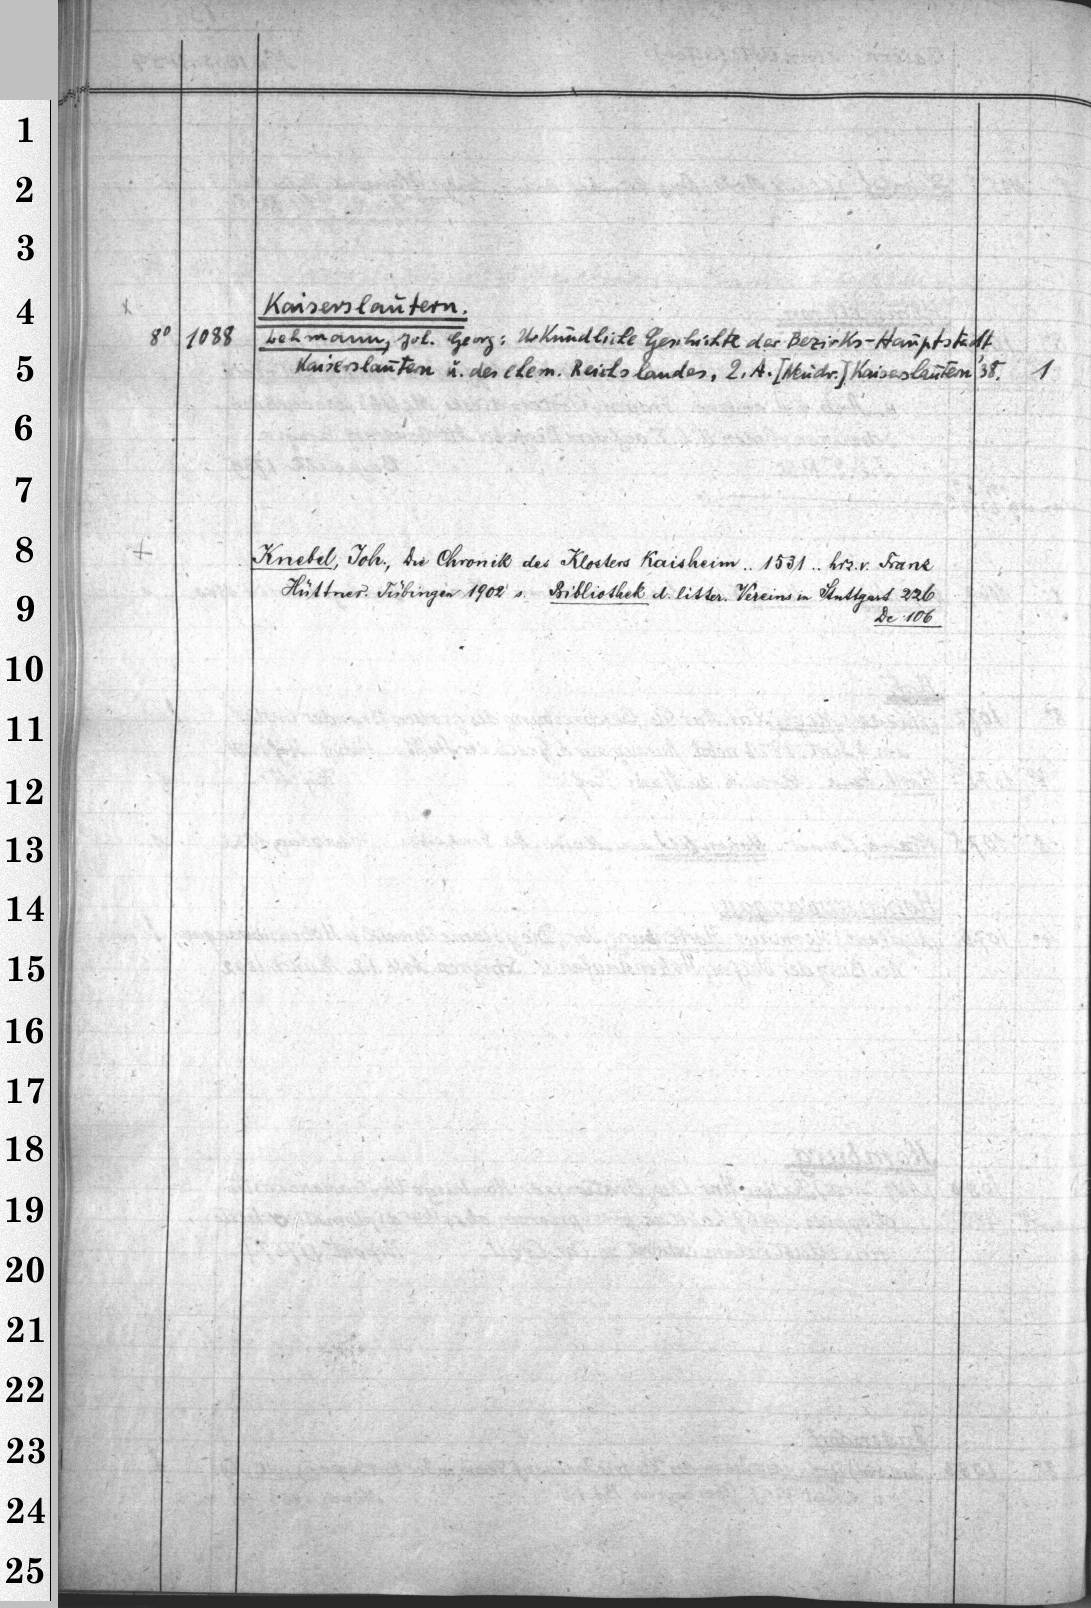 1
2
3
4
Kaiserslautern.
8° 1088 Lehmann, Joh. Georg: Urkundliche Geschichte der Bezirks-Hauptstadt
5
Kaiserslautern u. des ehem. Reichslandes, 2. A. [Neudr.] Kaiserslautern '38. 1
6
7
8
+ Knebel, Joh., Die Chronik des Klosters Kaisheim .. 1531 .. hrs. v. Franz
9
Hüttner. Tübingen 1902 s. Bibliothek d. litter. Vereins in Stuttgart 226
De 106
10
11
12
13
14
15
16
17
18
19
20
21
22
23
24
25